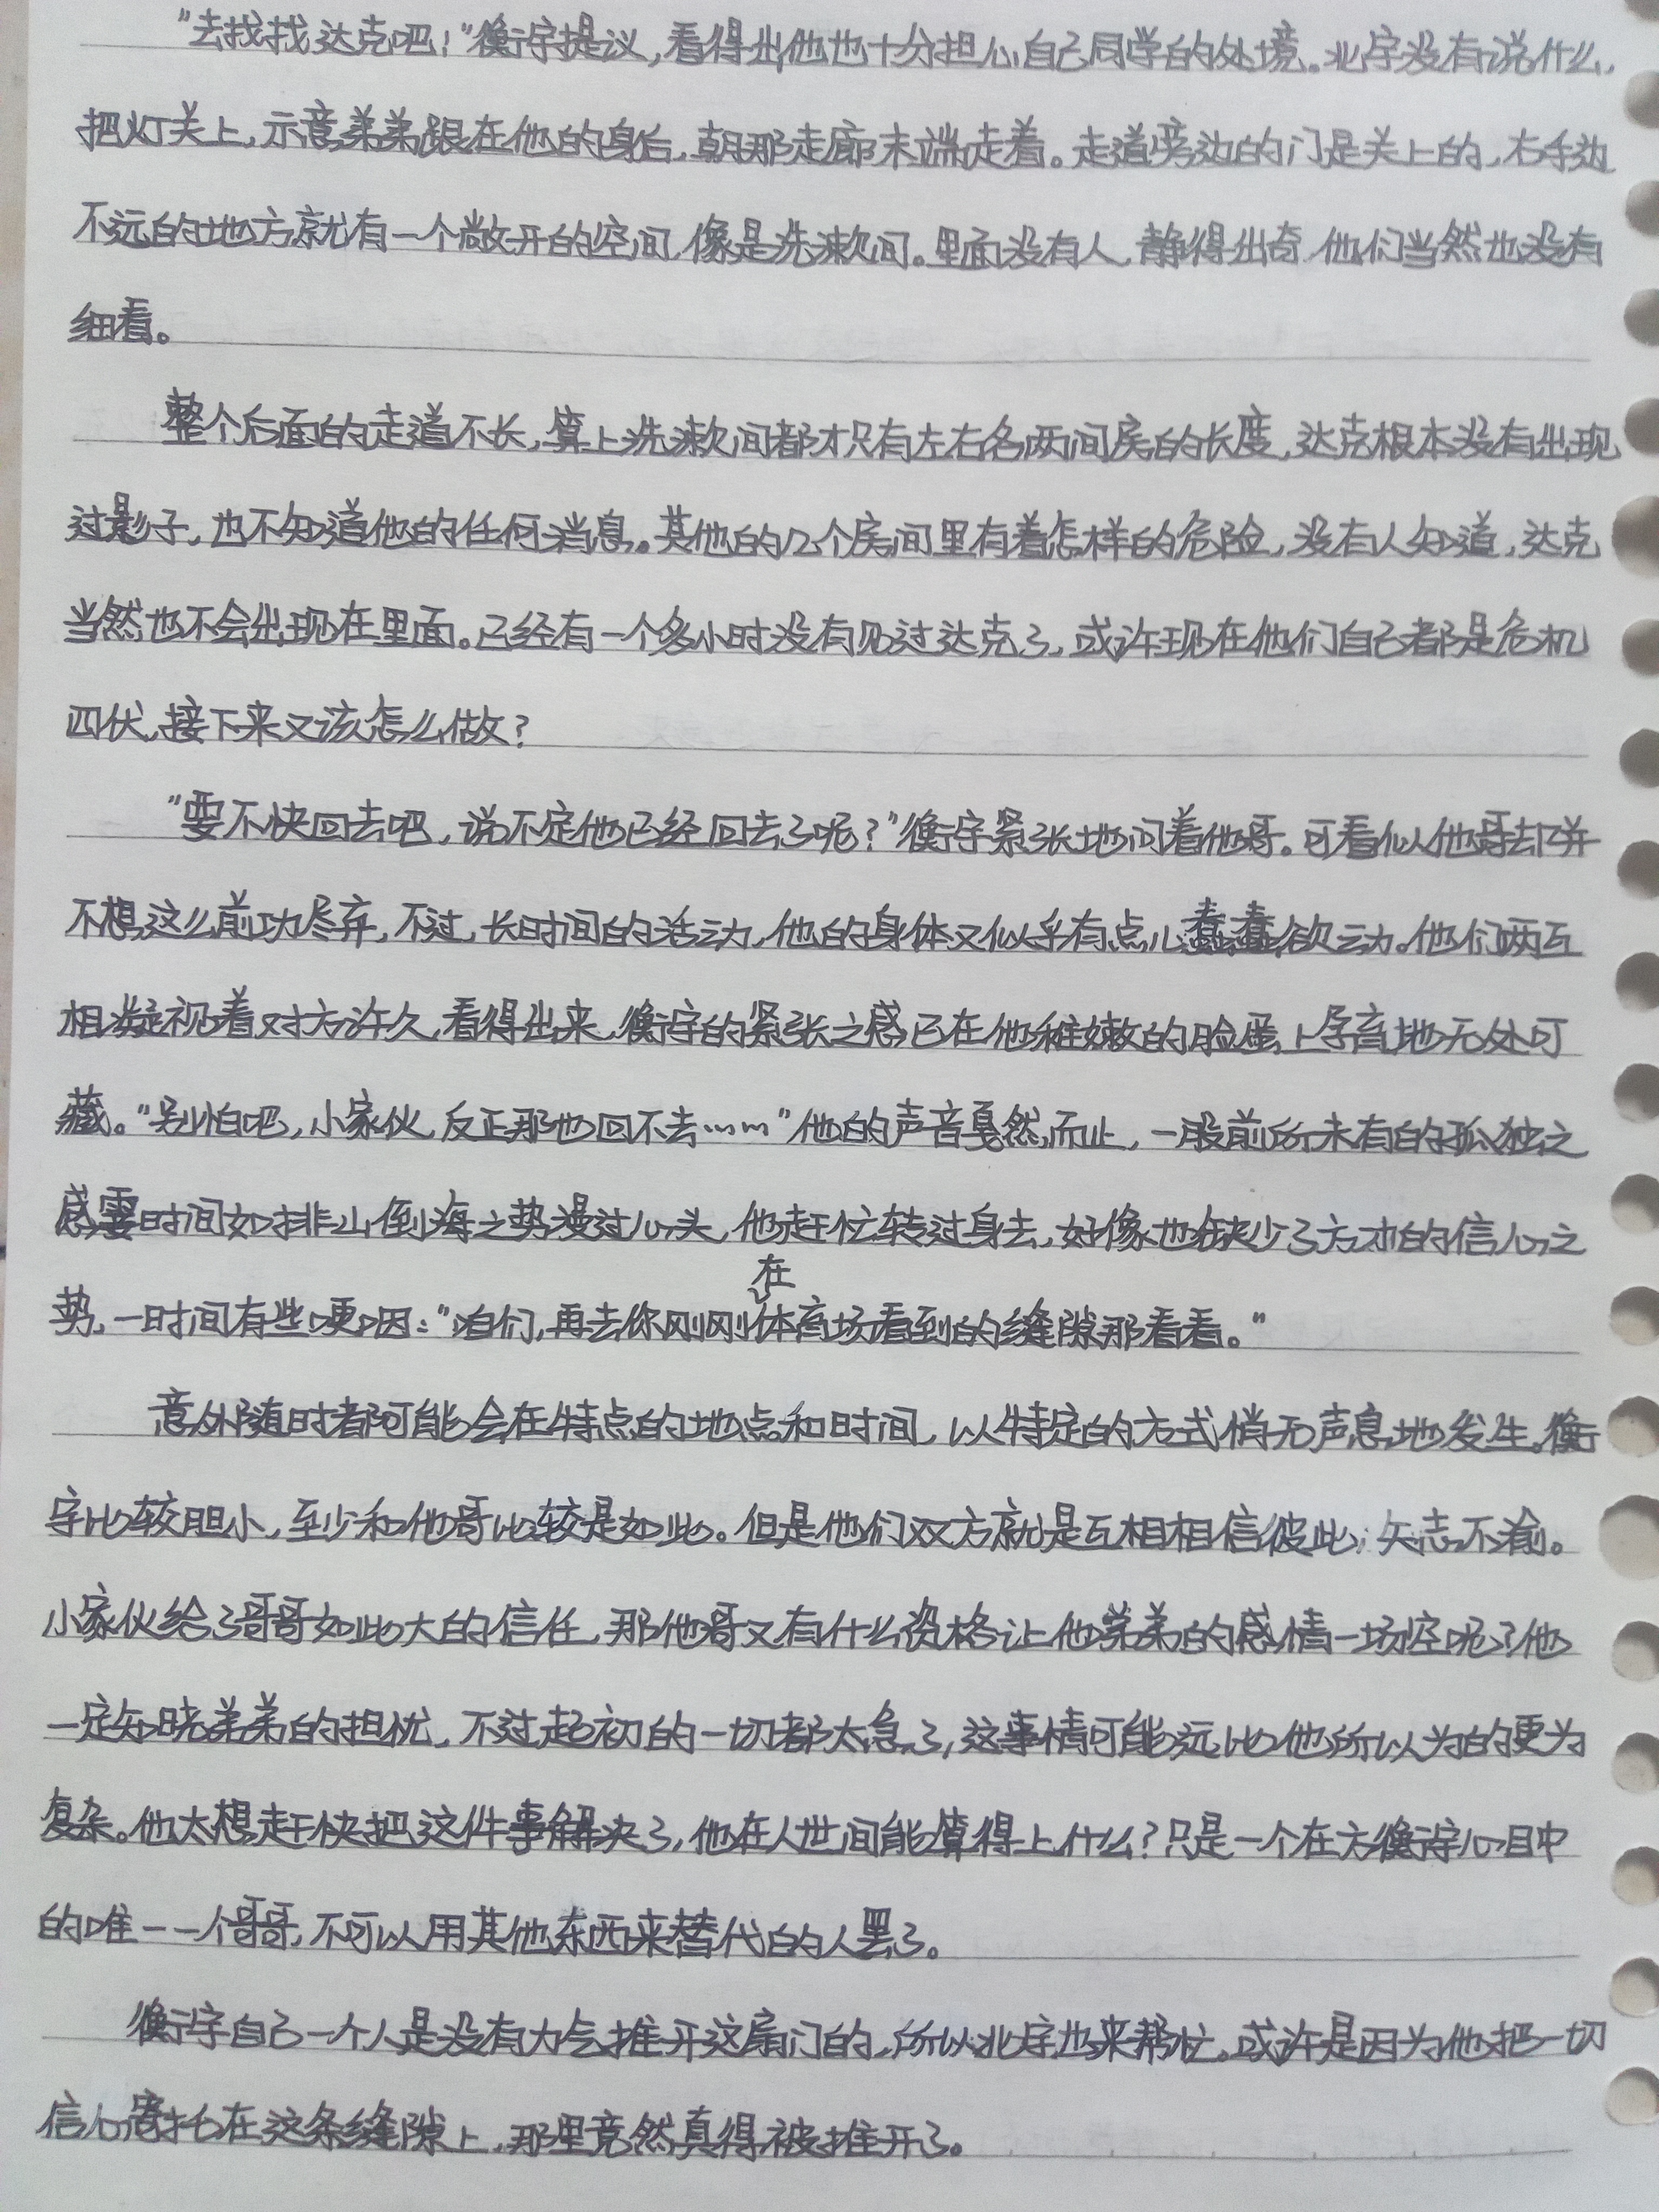 “去找找达克吧！”衡宇提议，看得出他也十分担心自己同学的处境。北宇没有说什么，
把灯关上，示意弟弟跟在他的身后，朝那走廊末端走着。走道旁边的门是关上的，右手边
不远的地方就有一个敞开的空间，像是洗漱间。里面没有人，静得出奇，他们当然也没有
细看。
整个后面的走道不长，算上洗漱间都才只有左右各两间房的长度，达克根本没有出现
过影子，也不知道他的任何消息。其他的几个房间里有着怎样的危险，没有人知道，达克
当然也不会出现在里面。已经有一个多小时没有见过达克了，或许现在他们自己都是危机
四伏，接下来又该怎么做？
“要不快回去吧，说不定他已经回去了呢？”衡宇紧张地问着他哥。可看似他哥却并
不想这么前功尽弃，不过，长时间的活动，他的身体又似乎有点儿蠢蠢欲动。他们两互
相凝视着对方许久，看得出来，衡宇的紧张之感已在他稚嫩的脸蛋上孕育地无处可
藏。“别怕吧，小家伙，反正那也回不去……”他的声音戛然而止，一股前所未有的孤独之
感霎时间如排山倒海之势漫过心头，他赶忙转过身去，好像也缺少了方才的信心之
势，一时间有些哽咽：“咱们，再去你刚刚在体育场看到的缝隙那看看。”
意外随时都可能会在特点的地点和时间，以特定的方式悄无声息地发生。衡
宇比较胆小，至少和他哥比较是如此。但是他们双方就是互相相信彼此，矢志不渝。
小家伙给了哥哥如此大的信任，那他哥又有什么资格让他弟弟的感情一场空呢？他
一定知晓弟弟的担忧，不过起初的一切都太急了，这事情可能远比他所以为的更为
复杂。他太想赶快把这件事解决了，他在人世间能算得上什么？只是一个在方衡宇心目中
的唯一一个哥哥，不可以用其他东西来替代的人罢了。
衡宇自己一个人是没有力气推开这扇门的，所以北宇也来帮忙。或许是因为他把一切
信心寄托在这条缝隙上，那里竟然真得被推开了。